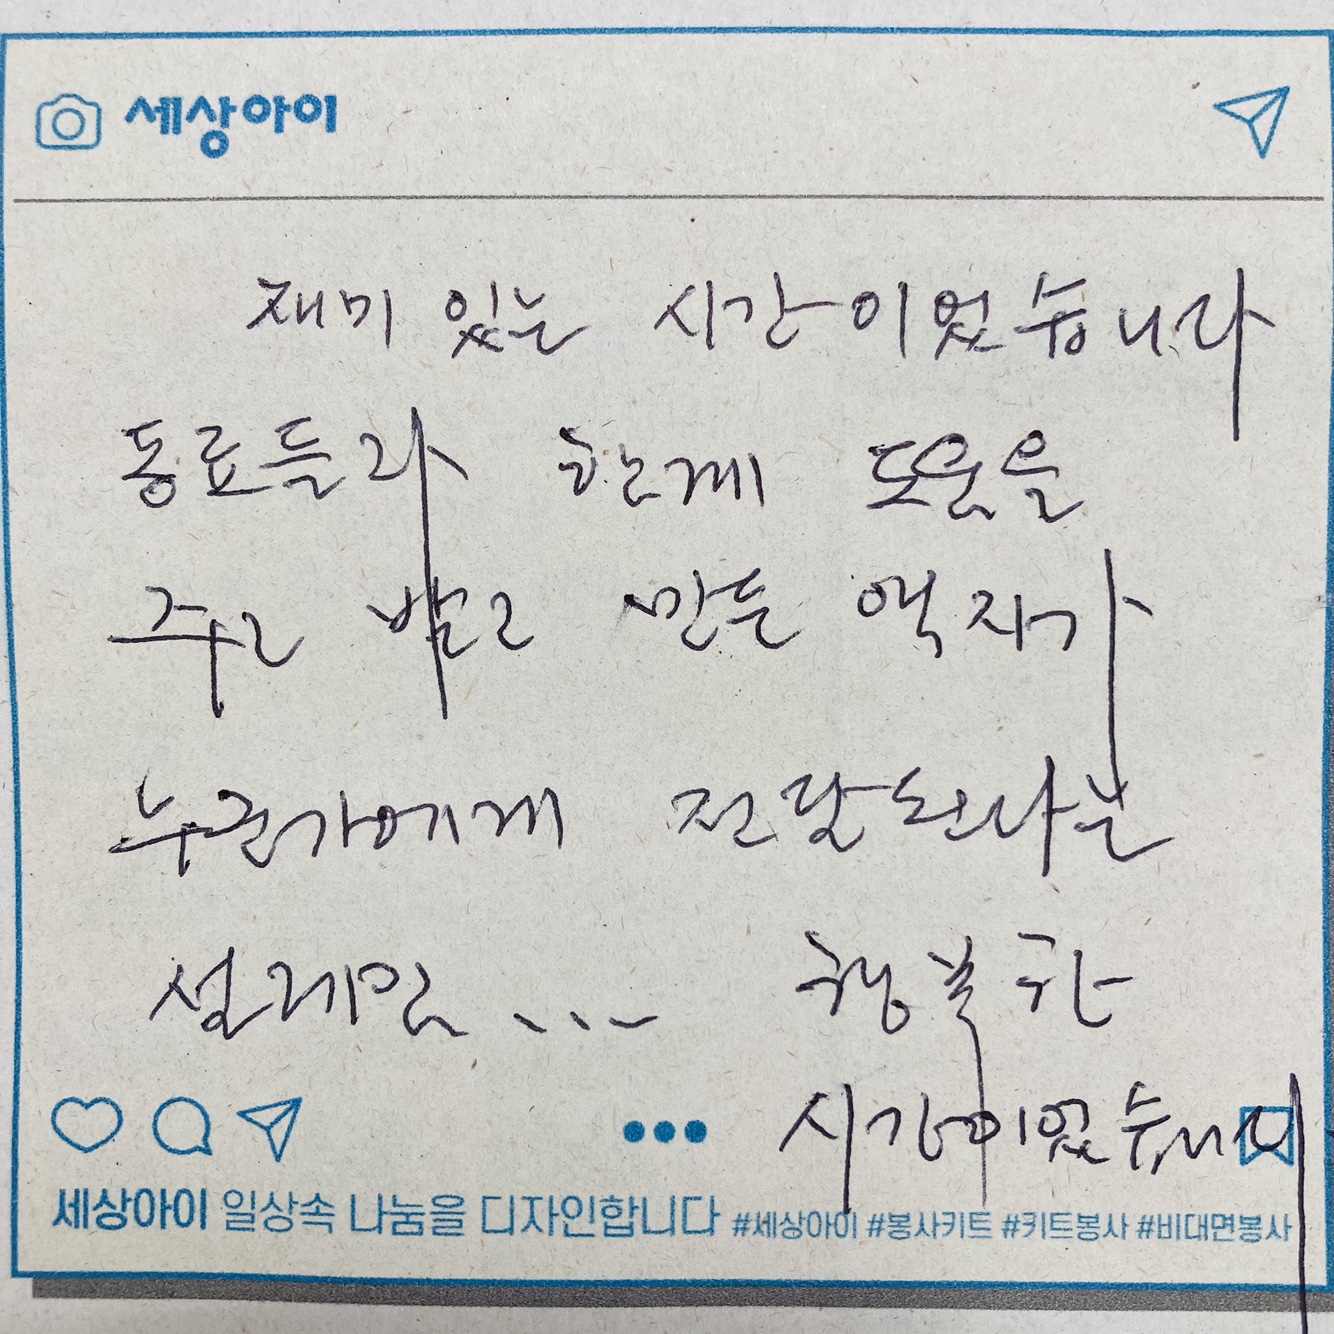 세상아이
재미 있는 시간이었습니다
동료들과 함께 도움을
주고 받고 만든 액자가
누군가에게 전달된다는
설레임...  행복한
시간이었습니다
세상아이 일상속 나눔을 디자인합니다 #세상아이 #봉사키트 #키트봉사 #비대면봉사